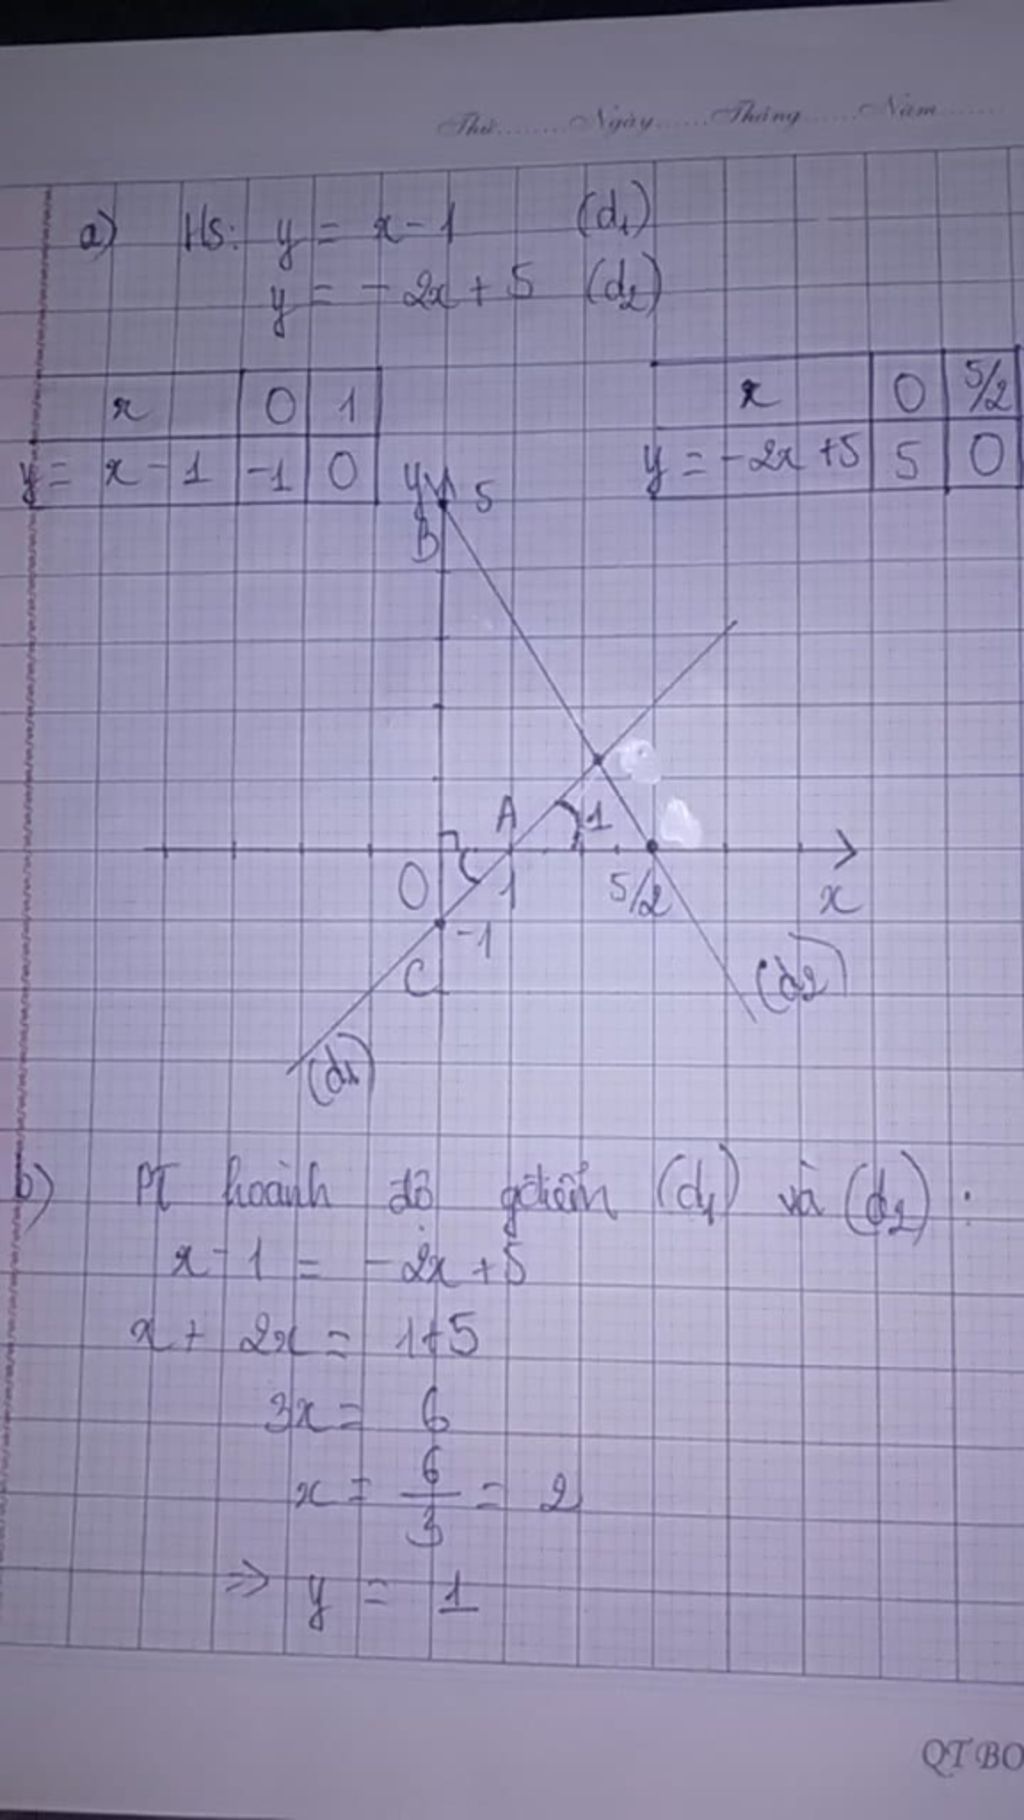 Thứ.......Ngày......Tháng......Năm.......
a) Hs: y = x - 1 (d1)
y = - 2x + 5 (d2)
x 0 1
y = x - 1 -1 0
x 0 5/2
y = -2x +5 5 0
y 5
B
A 1
O 1 5/2 x
-1
C
(d2)
(d1)
b) PT hoành độ gđiểm (d1) và (d2) :
x - 1 = - 2x + 5
x + 2x = 1+5
3x = 6
x = 6/3 = 2
=> y = 1
QT BO